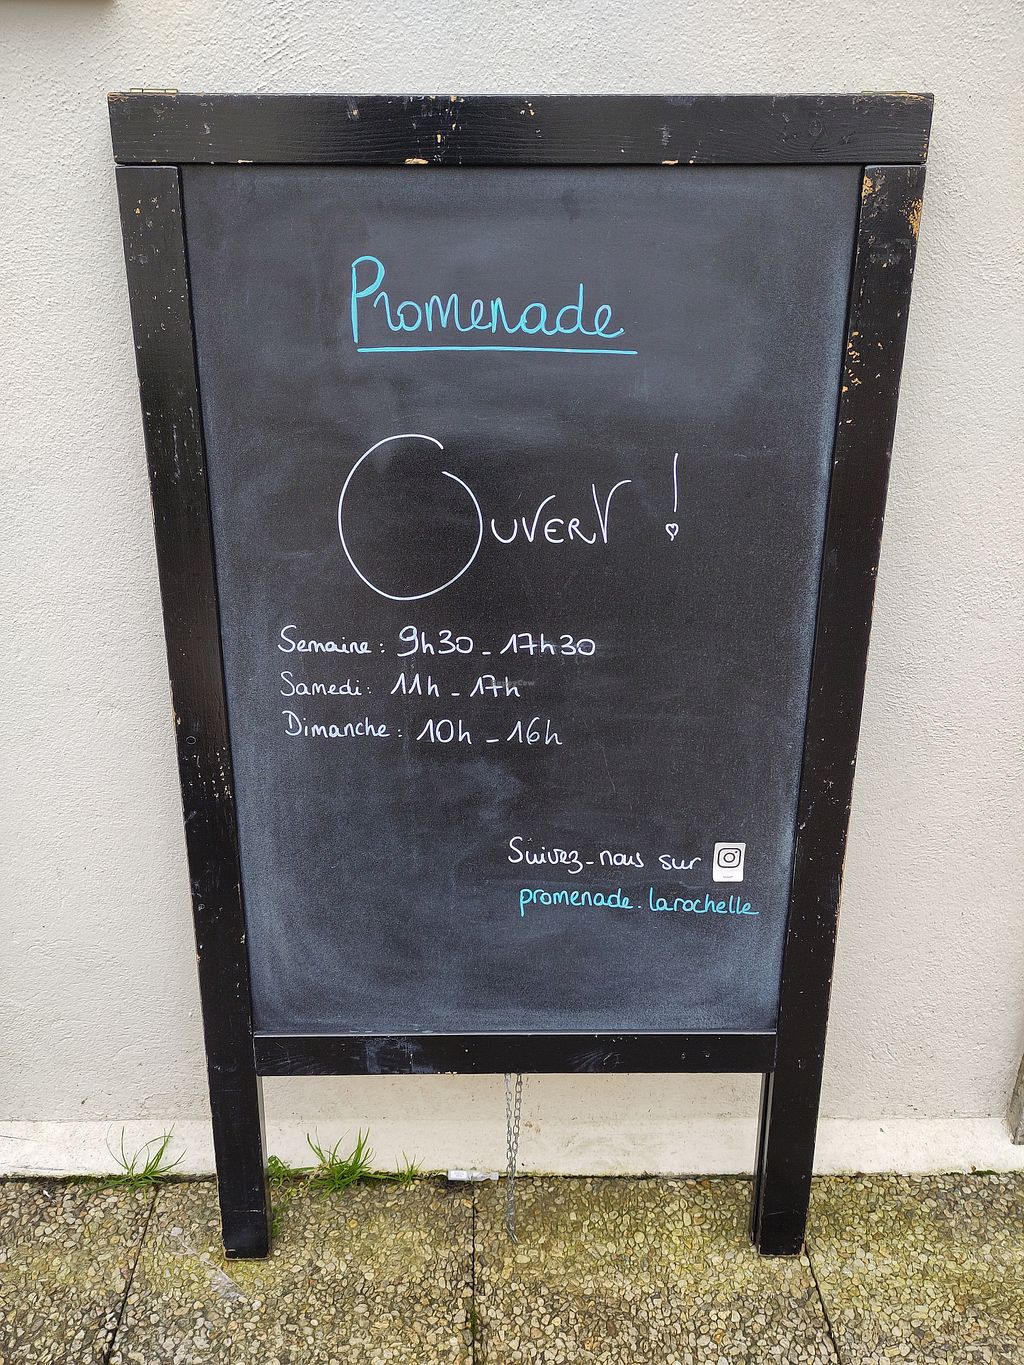 Promenade
OUVERT !
Semaine : 9h30 - 17h30
Samedi : 11h - 17h
Dimanche : 10h - 16h
Suivez-nous sur
promenade.larochelle